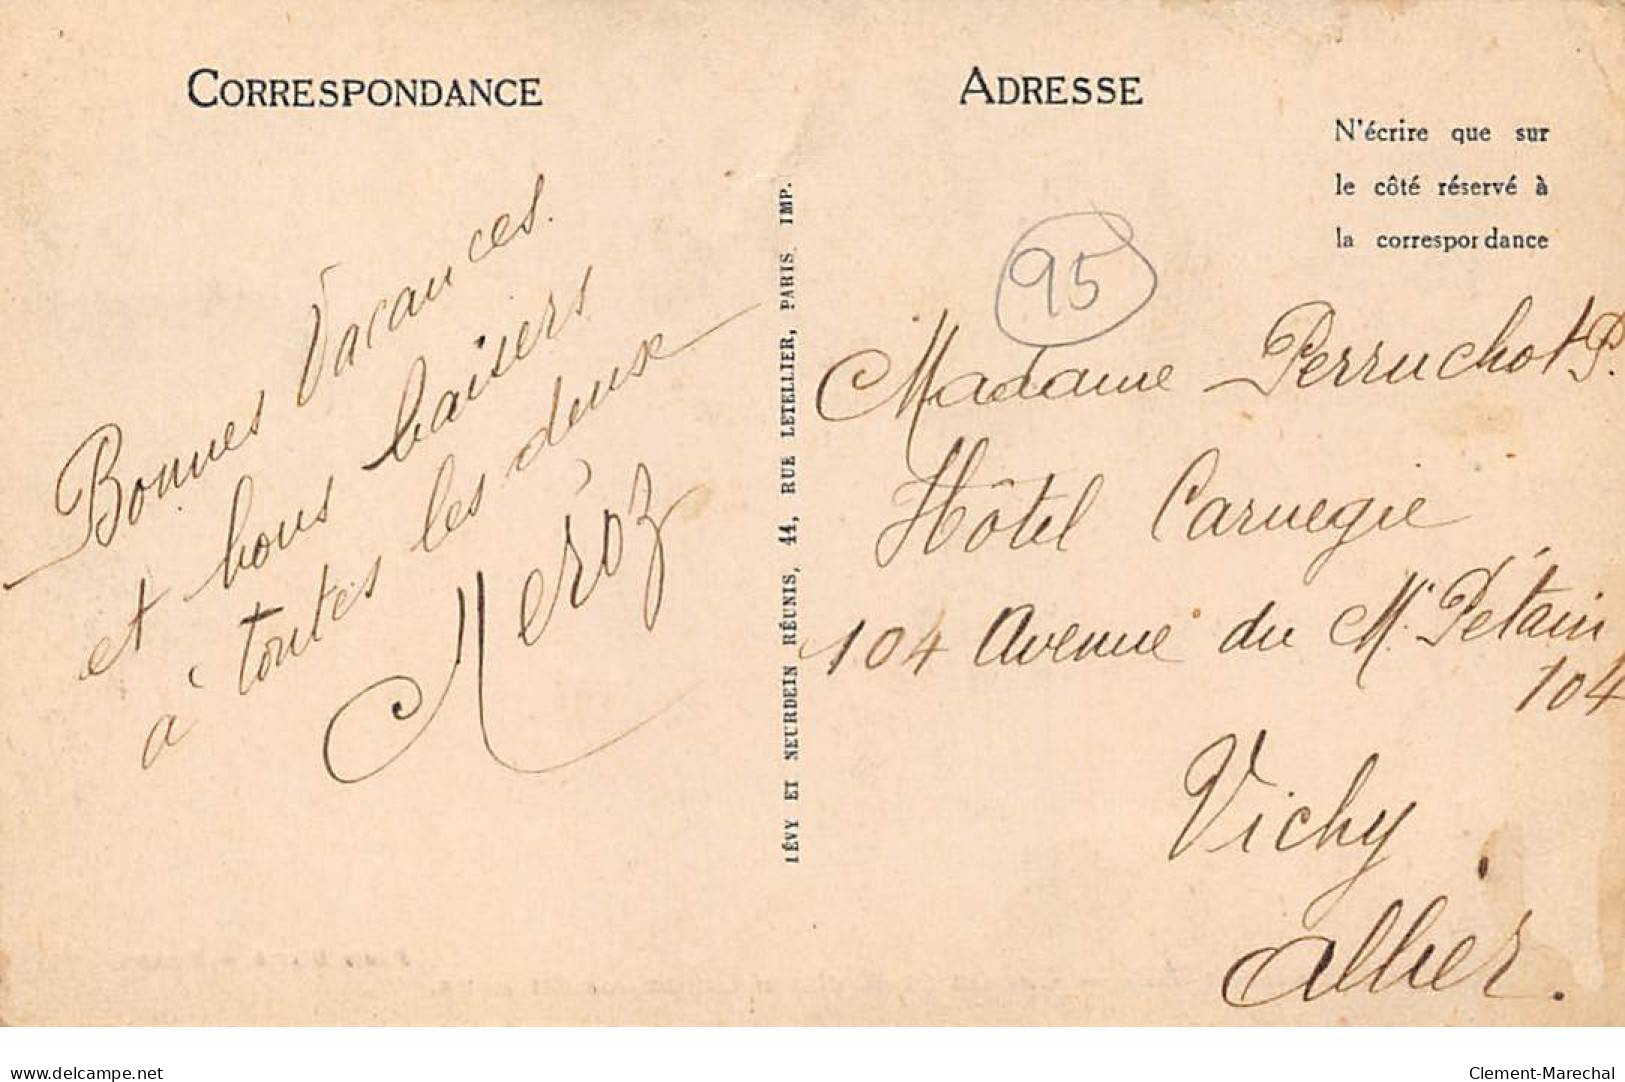 CORRESPONDANCE
Bonnes Vacances.
et bons baisers
à toutes les deux
Néroz
LÉVY ET NEURDEIN RÉUNIS, 44, RUE LETELLIER, PARIS. IMP.
ADRESSE
N'écrire que sur
le côté réservé à
la correspondance
95
Madame Perruchot P.
Hôtel Carnegie
104 Avenue du Mal Pétain
104
Vichy
Allier.
delcampe.net
Clement-Marechal